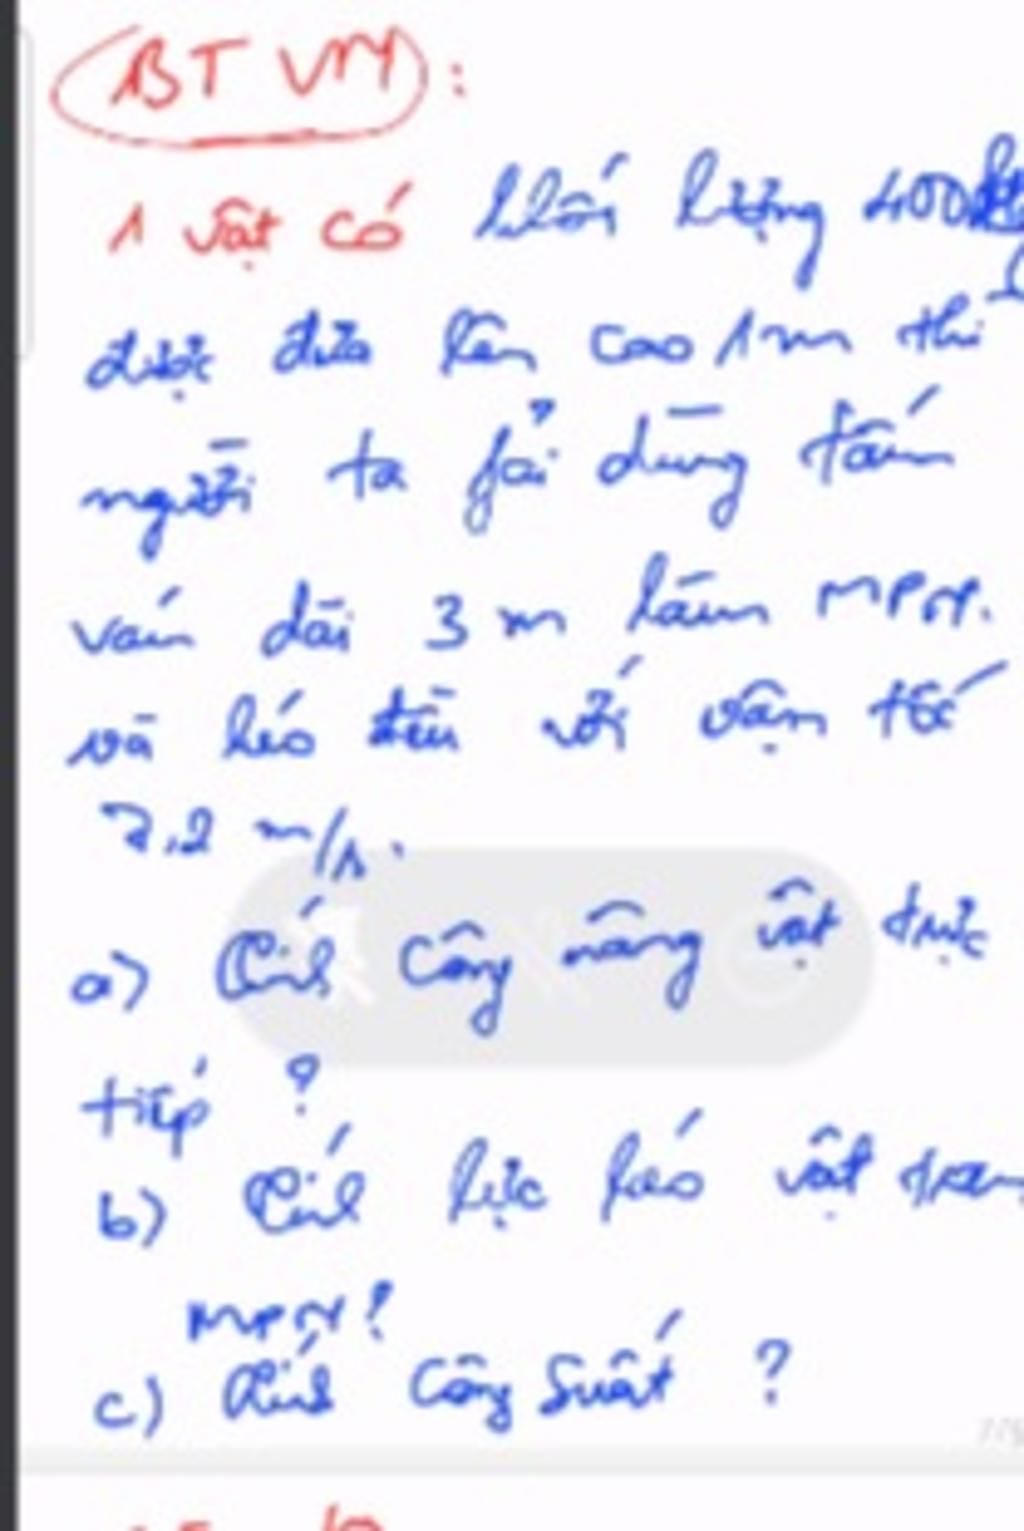 BT VN:
1 vật có khối lượng 400kg
được đưa lên cao 1m thì
người ta fải dùng tấm
ván dài 3m làm MPN.
và kéo đều với vận tốc
7,2 m/s.
a) Tính công nâng vật trực
tiếp?
b) Tính lực kéo vật trên
MPN?
c) Tính công suất?